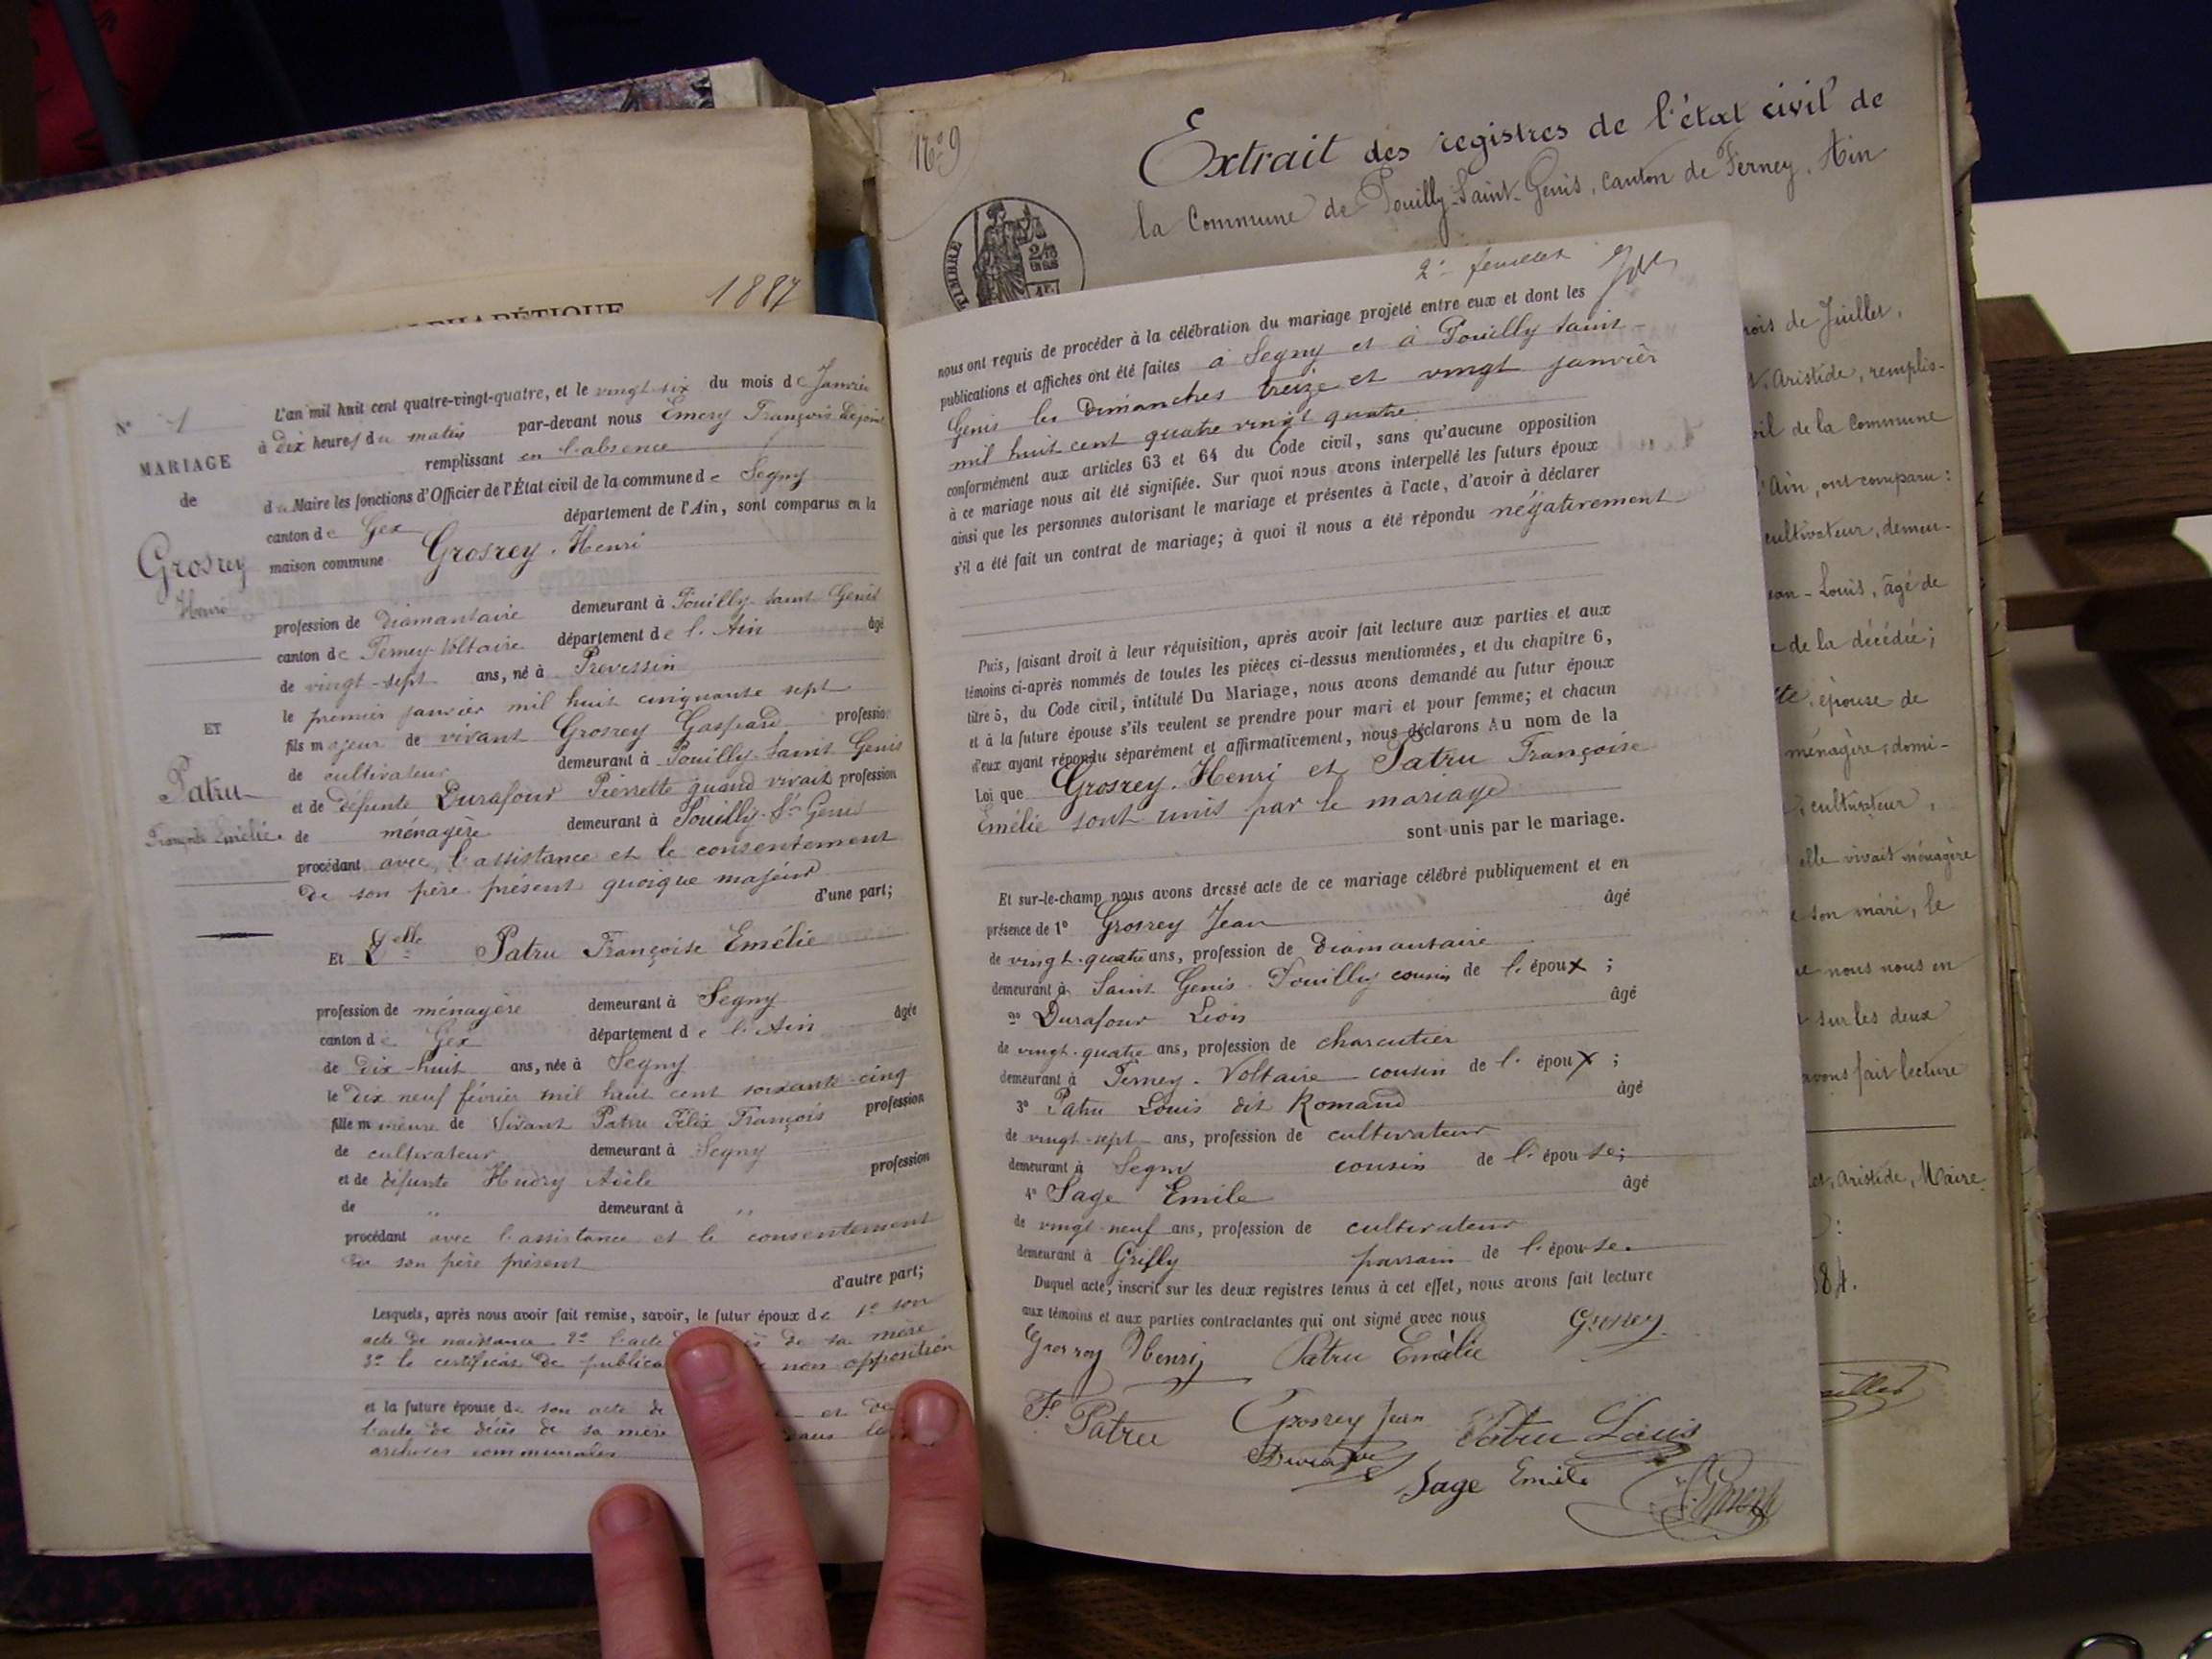 1887
ALPHABÉTIQUE
N° 1
MARIAGE
de
Grosrey
Henri
ET
Patru
Françoise Emélie
L'an mil huit cent quatre-vingt-quatre, et le vingt six du mois de Janvier
à dix heures du matin par-devant nous Emery François adjoint
remplissant en l'absence
du Maire les fonctions d'Officier de l'État civil de la commune de Segny
canton de Gex département de l'Ain, sont comparus en la
maison commune Grosrey Henri
profession de diamantaire demeurant à Pouilly Saint Genis
canton de Ferney-Voltaire département de l'Ain âgé
de vingt-sept ans, né à Prevessin
le premier janvier mil huit cinquante sept
fils majeur de vivant Grosrey Gaspard profession
de cultivateur demeurant à Pouilly Saint Genis
et de défunte Durafour Pierrette quand vivait profession
de ménagère demeurant à Pouilly St Genis
procédant avec l'assistance et le consentement
de son père présent quoique majeur
d'une part;
Et Delle Patru Françoise Emélie
profession de ménagère demeurant à Segny
canton de Gex département de l'Ain âgée
de dix-huit ans, née à Segny
le dix neuf février mil huit cent soixante-cinq
fille mineure de Vivant Patru Félix François profession
de cultivateur demeurant à Segny
et de défunte Hudry Adèle profession
de " demeurant à "
procédant avec l'assistance et le consentement
de son père présent
d'autre part;
Lesquels, après nous avoir fait remise, savoir, le futur époux de 1° son
acte de naissance 2° l'acte de sa mère
3° le certificat de publica non opposition
et la future épouse de son acte de et de
l'acte de décès de sa mère
archives communales
N° 9
Extrait des registres de l'état civil de
la Commune de Pouilly-Saint-Genis, canton de Ferney, Ain
TIMBRE
2e feuillet
nous ont requis de procéder à la célébration du mariage projeté entre eux et dont les
publications et affiches ont été faites à Segny et à Pouilly Saint
Genis les Dimanches treize et vingt janvier
mil huit cent quatre vingt quatre
conformément aux articles 63 et 64 du Code civil, sans qu'aucune opposition
à ce mariage nous ait été signifiée. Sur quoi nous avons interpellé les futurs époux
ainsi que les personnes autorisant le mariage et présentes à l'acte, d'avoir à déclarer
s'il a été fait un contrat de mariage; à quoi il nous a été répondu négativement
Puis, faisant droit à leur réquisition, après avoir fait lecture aux parties et aux
témoins ci-après nommés de toutes les pièces ci-dessus mentionnées, et du chapitre 6,
titre 5, du Code civil, intitulé Du Mariage, nous avons demandé au futur époux
et à la future épouse s'ils veulent se prendre pour mari et pour femme; et chacun
d'eux ayant répondu séparément et affirmativement, nous déclarons Au nom de la
Loi que Grosrey Henri et Patru Françoise
Emélie sont unis par le mariage
sont unis par le mariage.
Et sur-le-champ nous avons dressé acte de ce mariage célébré publiquement et en
présence de 1° Grosrey Jean âgé
de vingt-quatre ans, profession de diamantaire
demeurant à Saint Genis Pouilly cousin de l'époux ;
2° Durafour Léon âgé
de vingt-quatre ans, profession de charcutier
demeurant à Ferney-Voltaire cousin de l'époux ;
3° Patru Louis dit Romand âgé
de vingt-sept ans, profession de cultivateur
demeurant à Segny cousin de l'épouse;
4° Sage Emile âgé
de vingt-neuf ans, profession de cultivateur
demeurant à Grilly parrain de l'épouse.
Duquel acte, inscrit sur les deux registres tenus à cet effet, nous avons fait lecture
aux témoins et aux parties contractantes qui ont signé avec nous Grosrey
Grosrey Henri Patru Emèlie
Fx Patru Grosrey Jean Patru Louis
Durafour
Sage Emile
mois de Juillet,
Aristide, remplis-
de la Commune
l'Ain, ont comparu:
cultivateur, demeu-
Louis, âgé de
de la décédée;
épouse de
ménagère, domi-
cultivateur,
elle vivait ménagère
son mari, le
nous nous en
sur les deux
avons fait lecture
Aristide, Maire